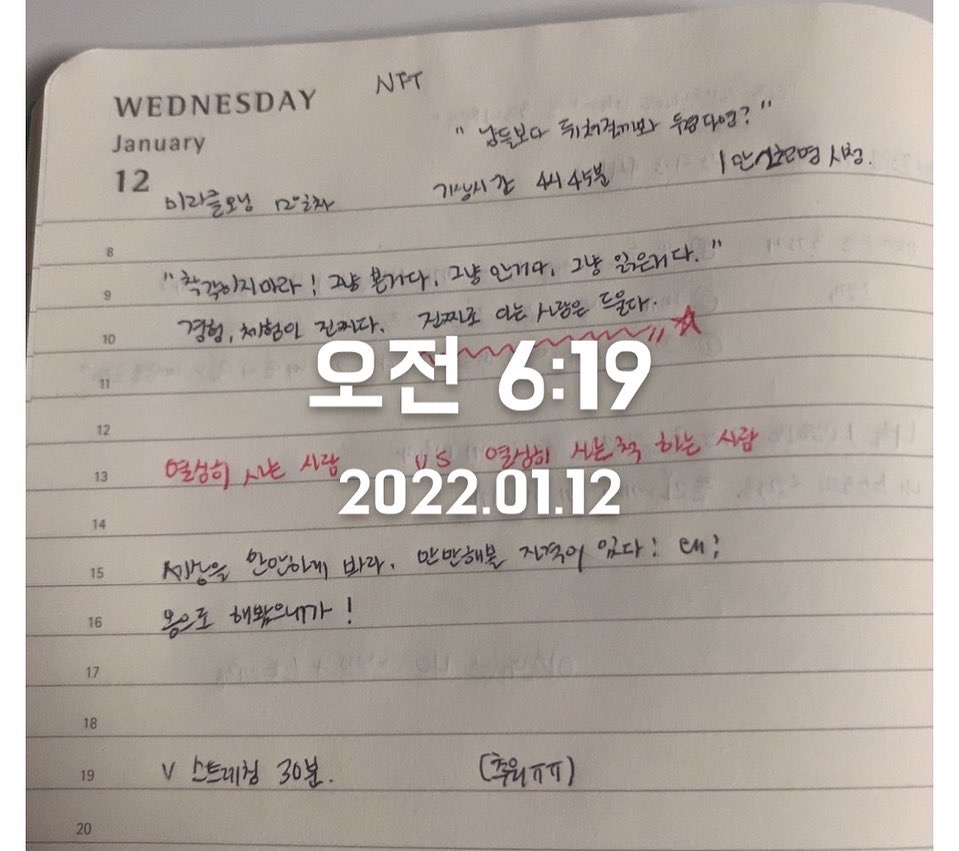 WEDNESDAY
NFT
January
12
" 남들보다 뒤쳐질까봐 두렵다면? "
미라클모닝 12일차
기상시간 4시 45분
1만 명 시청.
8
9
"착각하지마라! 그냥 본거다, 그냥 안거다, 그냥 읽은거다."
10
경험, 체험이 진짜다. 진짜로 아는 사람은 드물다.
오전 6:19
11
12
13
열심히 사는 사람 VS 열심히 사는척 하는 사람
2022.01.12
14
15
세상을 만만하게 봐라. 만만해볼 자격이 있다! 왜?
16
몸으로 해봤으니까!
17
18
19
V 스트레칭 30분. (추워ㅠㅠ)
20